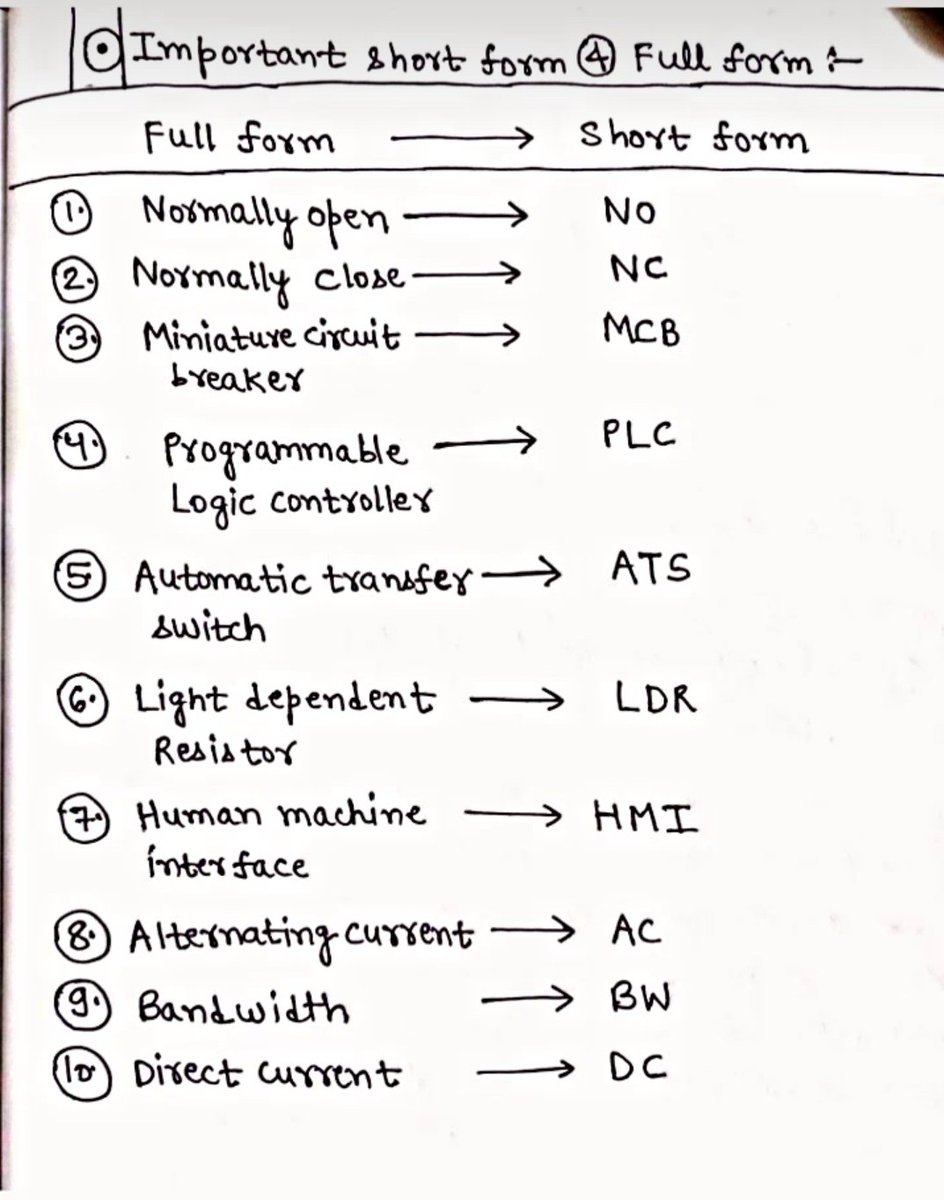 Important short form 4 Full form :-
Full form → Short form
1. Normally open → NO
2. Normally close → NC
3. Miniature circuit → MCB
breaker
4. Programmable → PLC
Logic controller
5 Automatic transfer → ATS
switch
6. Light dependent → LDR
Resistor
7. Human machine → HMI
interface
8. Alternating current → AC
9. Bandwidth → BW
10 Direct current → DC